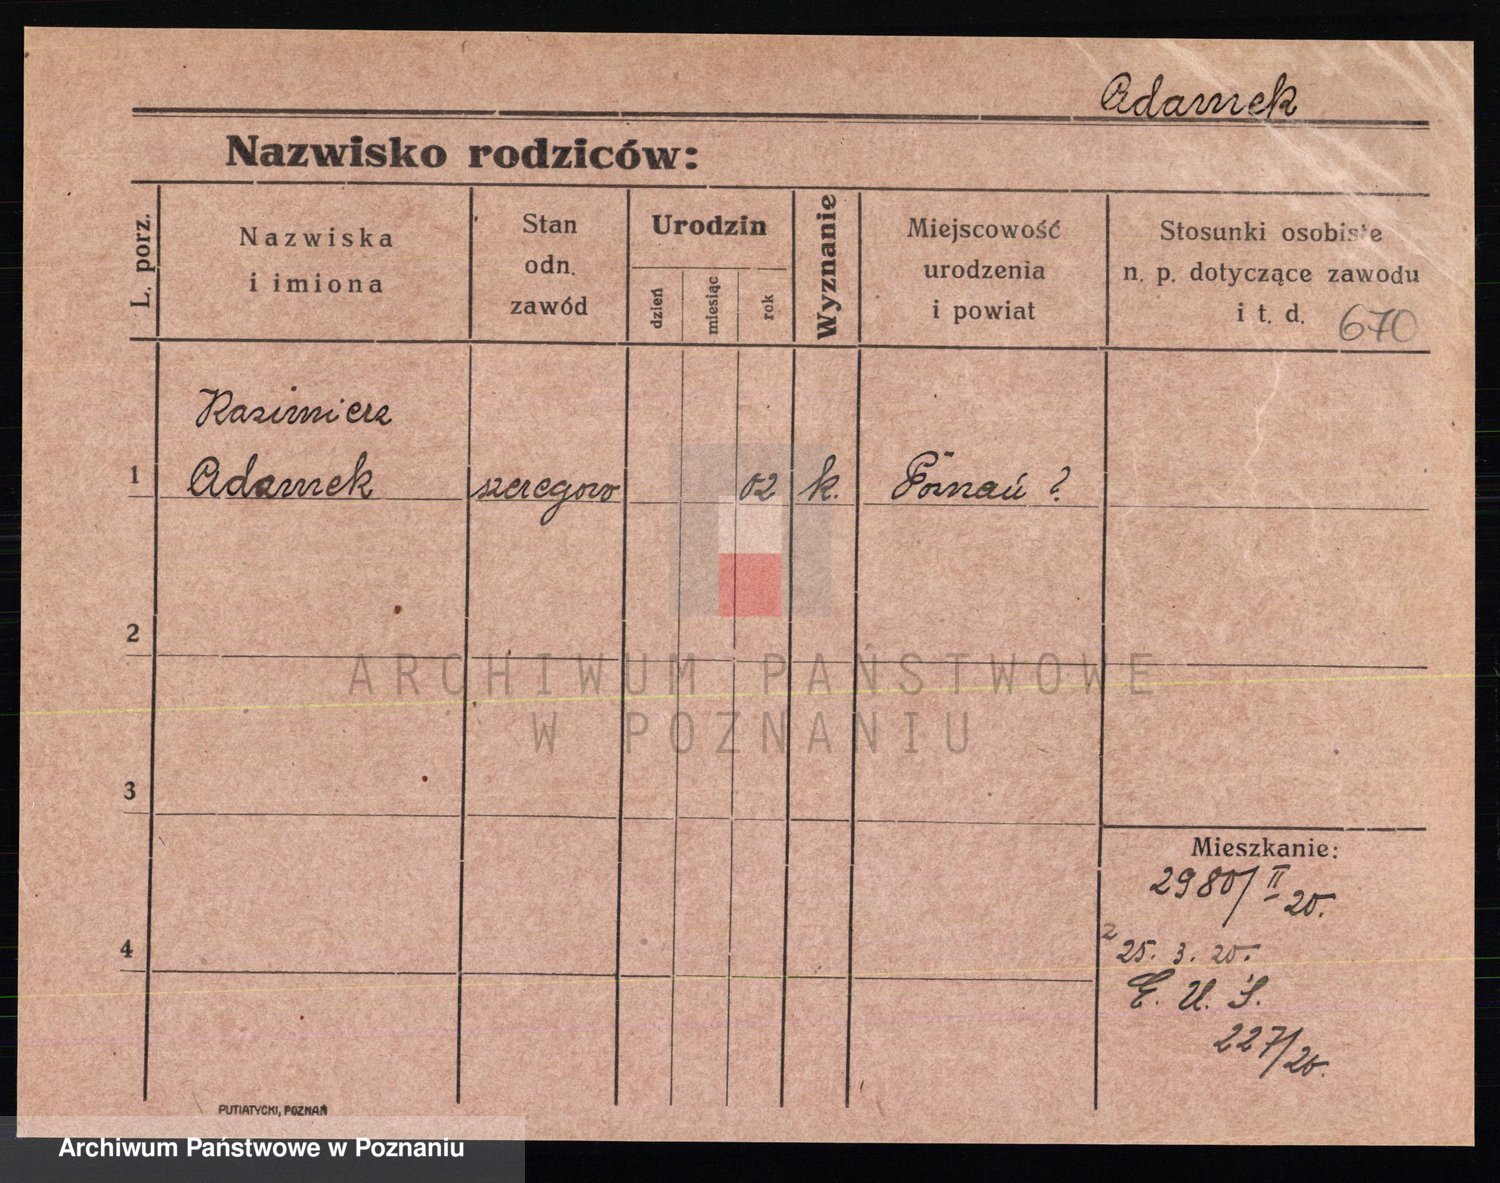 Adamek
Nazwisko rodziców:
L. porz.
Nazwiska
i imiona
Stan
odn.
zawód
Urodzin
dzień
miesiąc
rok
Wyznanie
Miejscowość
urodzenia
i powiat
Stosunki osobiste
n. p. dotyczące zawodu
i t. d. 670
Kazimierz
1 Adamek szeregow 02 k. Poznań ?
2
ARCHIWUM PAŃSTWOWE
W POZNANIU
3
Mieszkanie:
2980/II 20.
4
z 25. 3. 20.
E. U. S.
227/20.
PUTIATYCKI, POZNAŃ
Archiwum Państwowe w Poznaniu